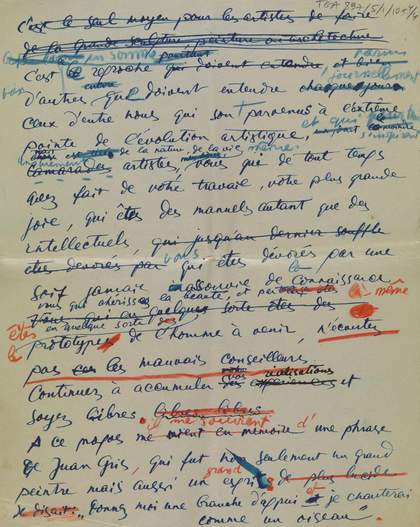 TGA 897/5/1/1054/4
c'est le seul moyen pour les artistes de faire
de la grande sculpture peinture ou architecture
C'est en somme le reproche qui doivent entendre, et bien
d'autres que doivent entendre journellement
ceux d'entre nous qui sont parvenus à l'extrême
pointe de l'évolution artistique, et qui
de la nature, de la vie, même
Camarades artistes, vous qui de tout temps
avez fait de votre travail, votre plus grande
joie, qui êtes des manuels autant que des
intellectuels, qui jusqu'au dernier souffle
êtes dévorés par vous qui êtes dévorés par une
soif jamais absouvie de la connaissance
vous qui chérissez la beauté, et
Vous qui en quelque sorte êtes des là-même
êtes en quelque sorte des
prototypes de l'homme à venir, n'écoutez
pas les mauvais conseillers
Continuez à accumuler réalisations et
soyez libres libres libres
il me souvient d'
A ce propos me vient en mémoire une phrase
de Juan Gris, qui fut non seulement un grand
peintre mais aussi un grand esprit de plus lucide
disait: Donnez moi une branche d'appui et je chanterai
comme un oiseau"